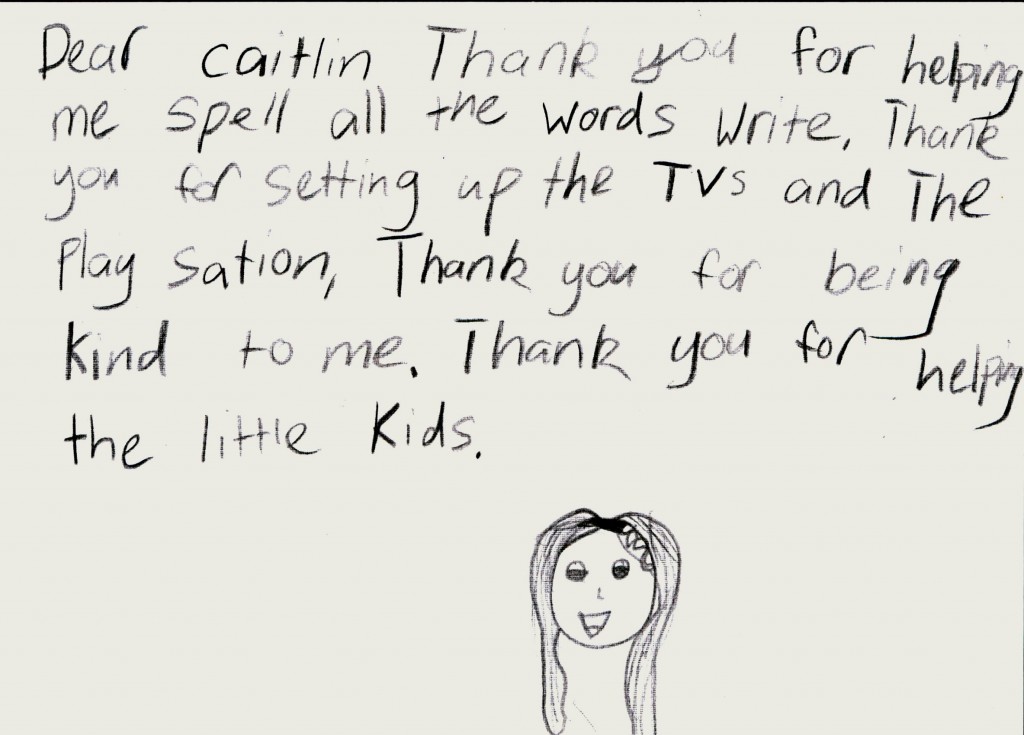 Dear caitlin Thank you for helping
me spell all the words write. Thank
you for setting up the TVs and The
Play sation, Thank you for being
kind to me. Thank you for helping
the little kids.